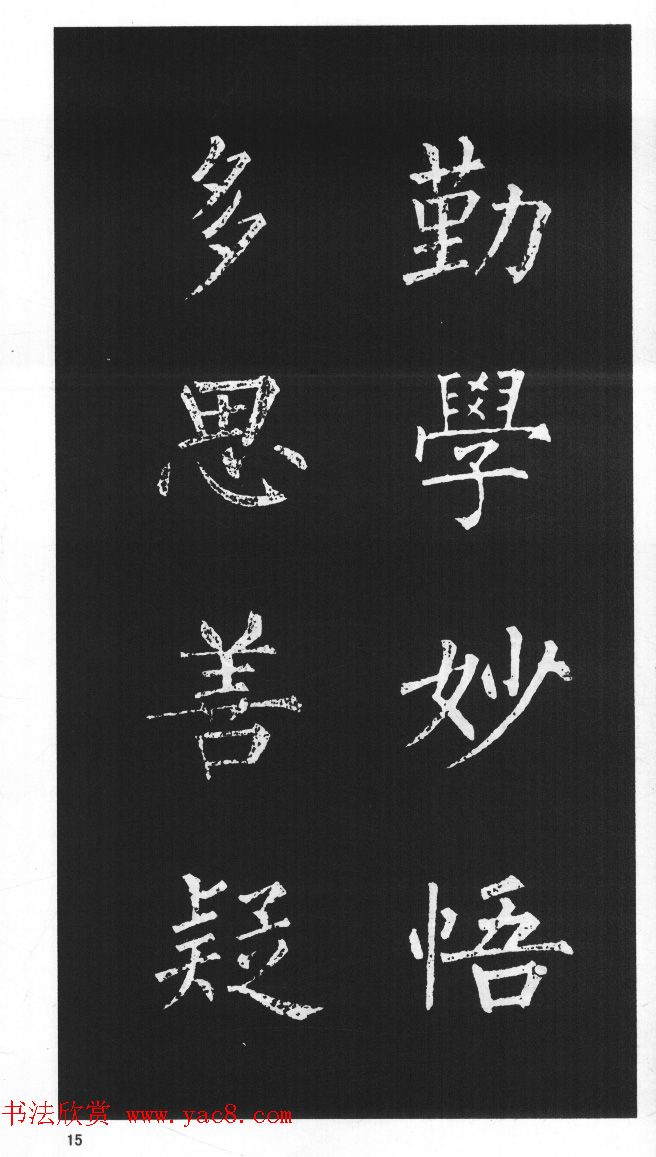 勤學妙悟
多思善疑
书法欣赏 www.yac8.com
15